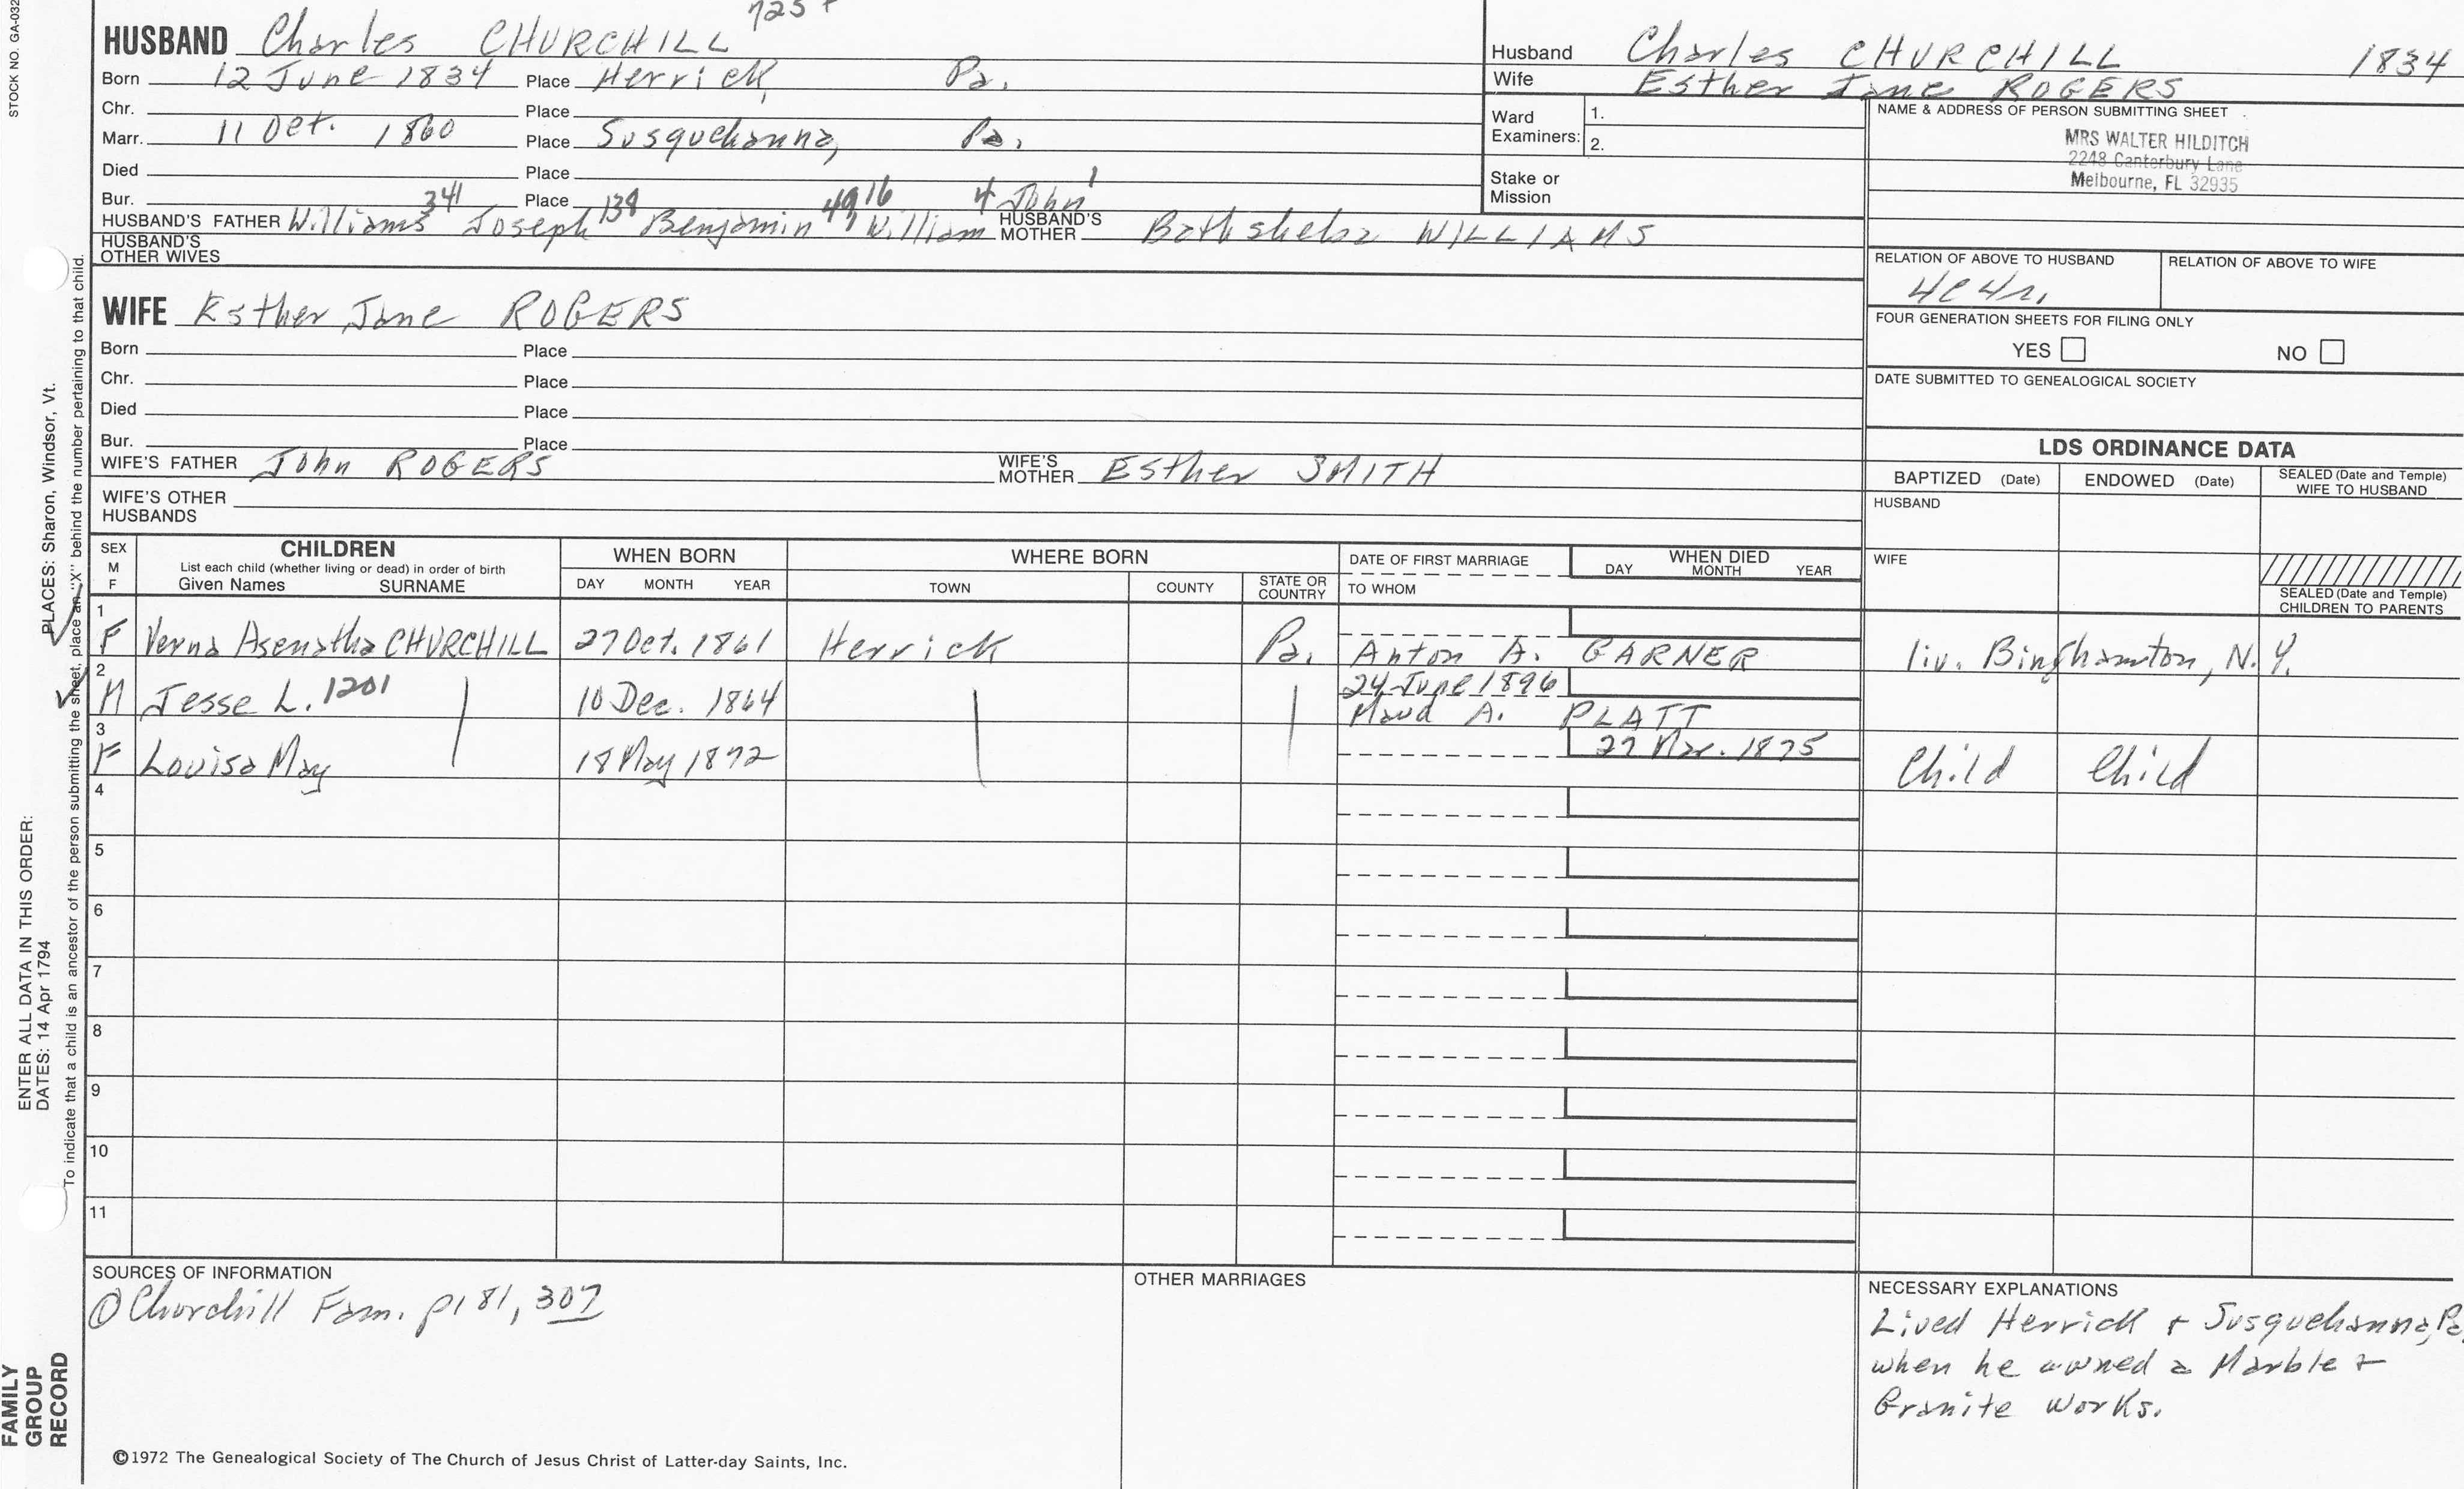 STOCK NO. GA-032
725
HUSBAND Charles CHURCHILL
Born 12 June 1834 Place Herrick, Pa.
Chr. Place
Marr. 11 Oct. 1860 Place Susquehanna, Pa.
Died Place
Bur. Place
341 138 49 16 4 John 1
HUSBAND'S FATHER Williams Joseph Benjamin William HUSBAND'S MOTHER Bathsheba WILLIAMS
HUSBAND'S OTHER WIVES
WIFE Esther Jane ROGERS
Born Place
Chr. Place
Died Place
Bur. Place
WIFE'S FATHER John ROGERS WIFE'S MOTHER Esther SMITH
WIFE'S OTHER HUSBANDS
Husband Charles CHURCHILL 1834
Wife Esther Jane ROGERS
Ward Examiners: 1.
2.
Stake or Mission
NAME & ADDRESS OF PERSON SUBMITTING SHEET
MRS WALTER HILDITCH
2248 Canterbury Lane
Melbourne, FL 32935
RELATION OF ABOVE TO HUSBAND RELATION OF ABOVE TO WIFE
4C4r.
FOUR GENERATION SHEETS FOR FILING ONLY
YES NO
DATE SUBMITTED TO GENEALOGICAL SOCIETY
LDS ORDINANCE DATA
BAPTIZED (Date) ENDOWED (Date) SEALED (Date and Temple) WIFE TO HUSBAND
HUSBAND
WIFE
SEALED (Date and Temple) CHILDREN TO PARENTS
SEX M F CHILDREN WHEN BORN WHERE BORN DATE OF FIRST MARRIAGE WHEN DIED
List each child (whether living or dead) in order of birth
Given Names SURNAME DAY MONTH YEAR TOWN COUNTY STATE OR COUNTRY TO WHOM DAY MONTH YEAR
1 F Verna Asenatha CHURCHILL 27 Oct. 1861 Herrick Pa. Anton A. GARNER liv. Binghamton, N.Y.
2 M Jesse L. 1201 10 Dec. 1864 24 June 1896
Maud A. PLATT
3 F Louisa May 18 May 1872 27 Mar. 1875 Child Child
4
5
6
7
8
9
10
11
SOURCES OF INFORMATION
① Churchill Fam. p181, 307
OTHER MARRIAGES
NECESSARY EXPLANATIONS
Lived Herrick + Susquehanna, Pa.
when he owned a Marble +
Granite Works.
©1972 The Genealogical Society of The Church of Jesus Christ of Latter-day Saints, Inc.
FAMILY GROUP RECORD
ENTER ALL DATA IN THIS ORDER:
DATES: 14 Apr 1794
PLACES: Sharon, Windsor, Vt.
To indicate that a child is an ancestor of the person submitting the sheet, place an "X" behind the number pertaining to that child.